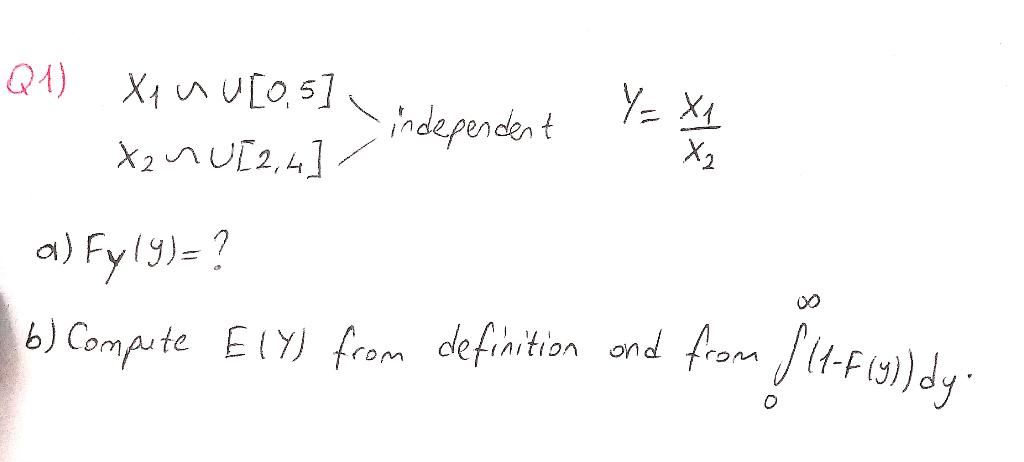 Q1) X₁ ~ U[0,5]
X₂ ~ U[2,4]
independent
Y = X₁/X₂
a) Fy(y) = ?
b) Compute E(Y) from definition and from ∫₀^∞ (1-F(y)) dy.